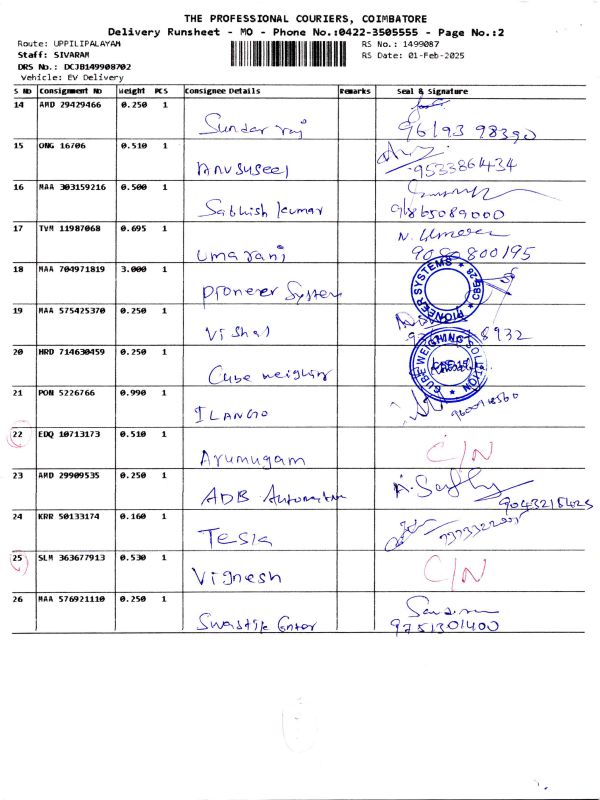 THE PROFESSIONAL COURIERS, COIMBATORE
Delivery Runsheet - MO - Phone No.:0422-3505555 - Page No.:2
Route: UPPILIPALAYAM RS No.: 1499087
Staff: SIVARAM RS Date: 01-Feb-2025
DRS No.: DCJB149908702
Vehicle: EV Delivery
S No Consignment No Weight PCS Consignee Details Remarks Seal & Signature
14 AMD 29429466 0.250 1
Sundar raj 96193 98390
15 ONG 16706 0.510 1
Anususeel 9533861434
16 MAA 303159216 0.500 1
Sabhish kumar 9865089000
17 TVM 11987068 0.695 1
umarani 9080800195
18 MAA 704971819 3.000 1
pioneer System PIONEER SYSTEMS
19 MAA 575425370 0.250 1
Vishal 8932
20 HRD 714630459 0.250 1
Cube weighing CUBE WEIGHING SOLUTION
21 PON 5226766 0.990 1
ILANGO
22 EDQ 10713173 0.510 1
Arumugam C/N
23 AMD 29909535 0.250 1
ADB Automation 9043218425
24 KRR 50133174 0.160 1
Tesla
25 SLM 363677913 0.530 1
Vignesh C/N
26 MAA 576921110 0.250 1
Swastik Enter 9751301400